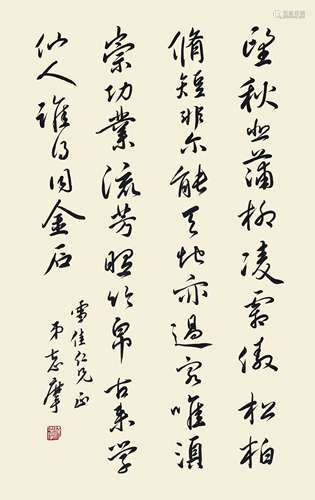 望秋悲蒲柳凌霜傲松柏
脩短非尔能天地亦過客唯須
崇功業流芳昭竹帛古来学
仙人誰得同金石
雪佳仁兄正
弟志摩